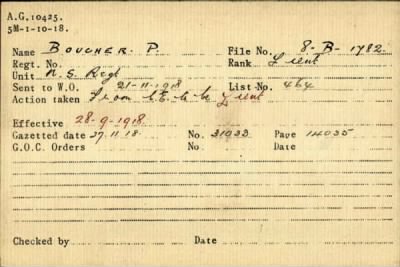 A.G.10425.
5M-1-10-18.
Name BOUCHER. P. File No. 8-B-1782
Regt. No. Rank Lieut
Unit N.S. Regt
Sent to W.O. 21-11-1918 List No. 464
Action taken From to be Lieut
Effective 28-9-1918
Gazetted date 27.11.18 No. 31033 Page 14035
G.O.C. Orders No. Date
Checked by Date